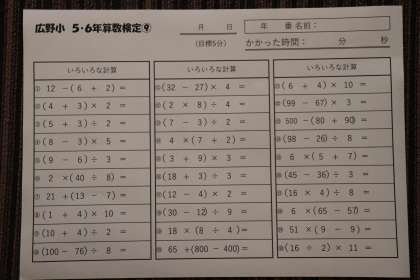 広野小 5・6年算数検定⑨
月 日
(目標5分)
年 番 名前：
かかった時間： 分 秒
いろいろな計算
① 12 －( 6 ＋ 2) ＝
② ( 4 ＋ 3) × 2 ＝
③ ( 5 ＋ 3) ÷ 2 ＝
④ ( 8 － 3) × 5 ＝
⑤ ( 9 － 6) ÷ 3 ＝
⑥ 2 ×(40 ÷ 8) ＝
⑦ 21 ＋(13 － 7) ＝
⑧ ( 1 ＋ 4) × 10 ＝
⑨ (10 ＋ 4) ÷ 2 ＝
⑩ (100 － 76) ÷ 8 ＝
いろいろな計算
⑪ (32 － 27) × 4 ＝
⑫ ( 2 × 8) ÷ 4 ＝
⑬ ( 7 － 3) ÷ 2 ＝
⑭ 4 ×( 7 ＋ 2) ＝
⑮ ( 3 ＋ 9) × 3 ＝
⑯ (18 ＋ 3) ÷ 3 ＝
⑰ (12 － 4) × 2 ＝
⑱ (30 － 12) ÷ 9 ＝
⑲ 18 ×( 8 ÷ 4) ＝
⑳ 65 ＋(800 － 400) ＝
いろいろな計算
㉑ ( 6 ＋ 4) × 10 ＝
㉒ (99 － 67) × 3 ＝
㉓ 500 －(80 ＋ 90) ＝
㉔ (98 － 26) ÷ 8 ＝
㉕ 6 ×( 5 ＋ 7) ＝
㉖ (45 － 36) ÷ 3 ＝
㉗ (16 × 4) ÷ 8 ＝
㉘ 6 ×(65 － 57) ＝
㉙ 51 ×( 9 － 9) ＝
㉚ (16 ÷ 2) × 11 ＝